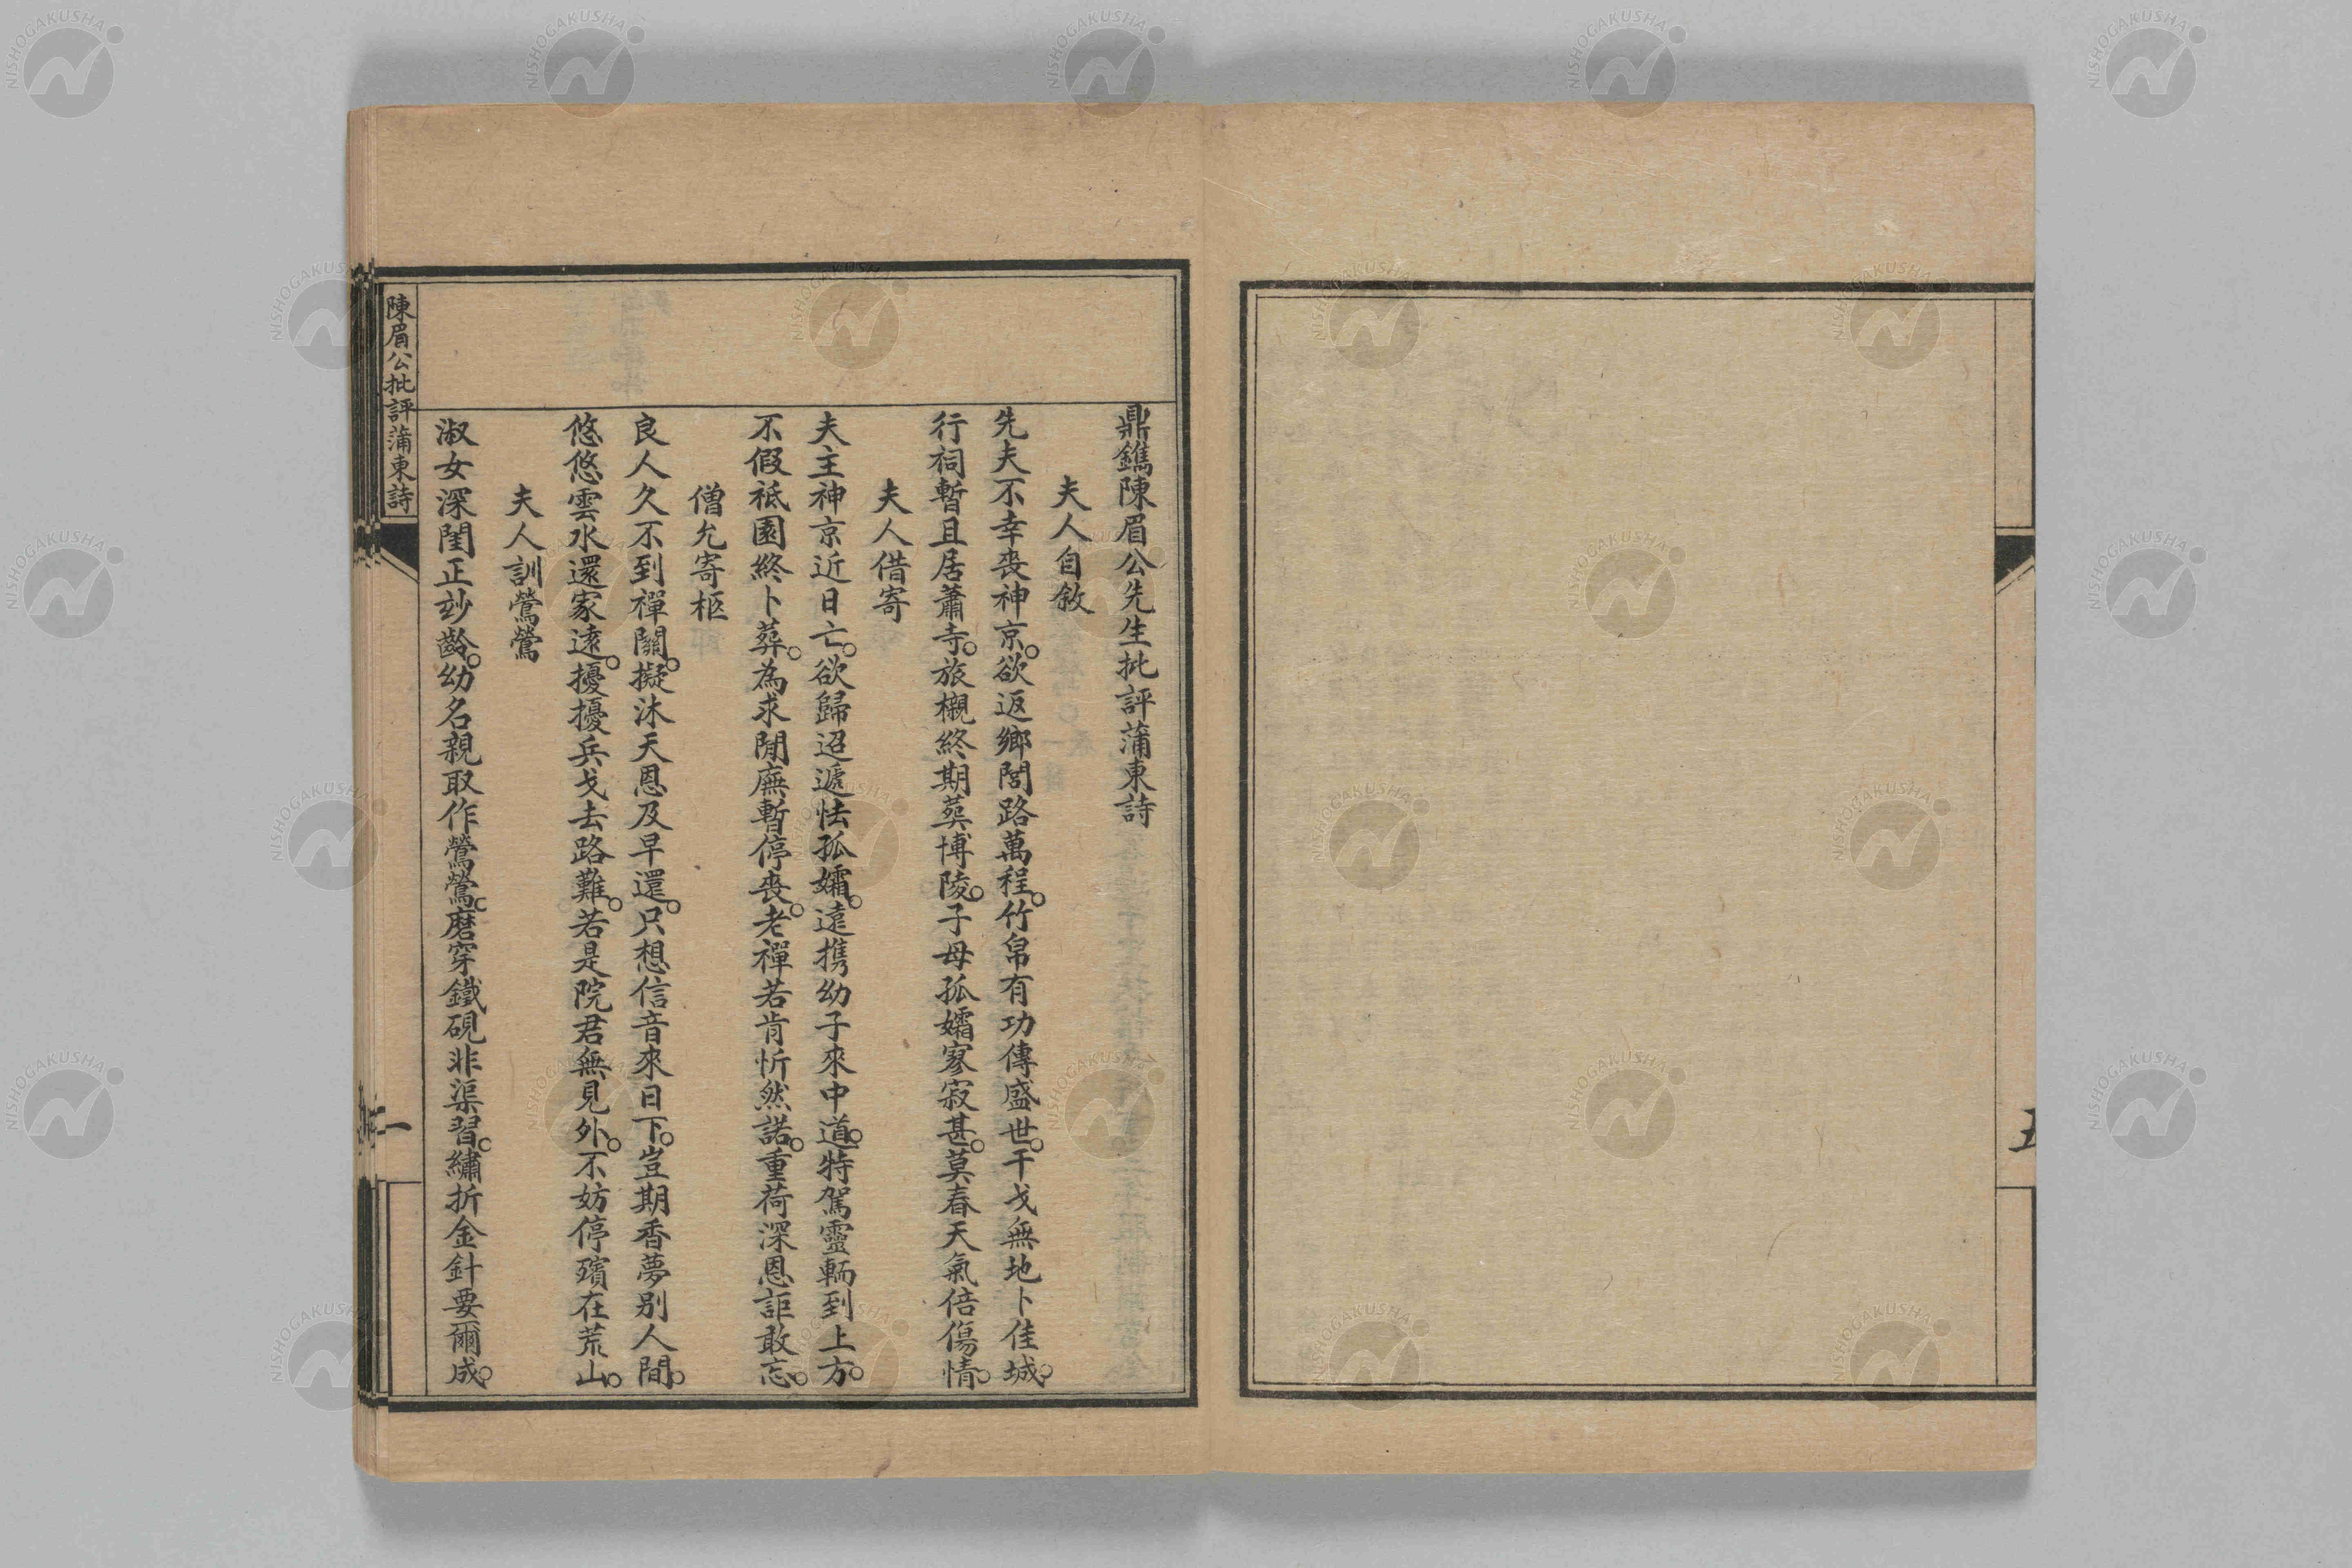 五
鼎鐫陳眉公先生批評蒲東詩
夫人自敘
先夫不幸喪神京○欲返鄉閭路萬程○竹帛有功傳盛世○干戈無地卜佳城○
行祠暫且居蕭寺○旅櫬終期葬博陵○子母孤孀寥寂甚○莫春天氣倍傷情○
夫人借寄
夫主神京近日亡○欲歸迢遞怯孤孀○遠攜幼子來中道○特駕靈輀到上方○
不假祇園終卜葬○為求閒廡暫停喪○老禪若肯忻然諾○重荷深恩詎敢忘○
僧允寄柩
良人久不到禪關○擬沐天恩及早還○只想信音來日下○豈期香夢別人間○
悠悠雲水還家遠○擾擾兵戈去路難○若是院君無見外○不妨停殯在荒山○
夫人訓鶯鶯
淑女深閨正玅齡○幼名親取作鶯鶯○磨穿鐵硯非渠習○繡折金針要爾成○
陳眉公批評蒲東詩
一
NISHOGAKUSHA